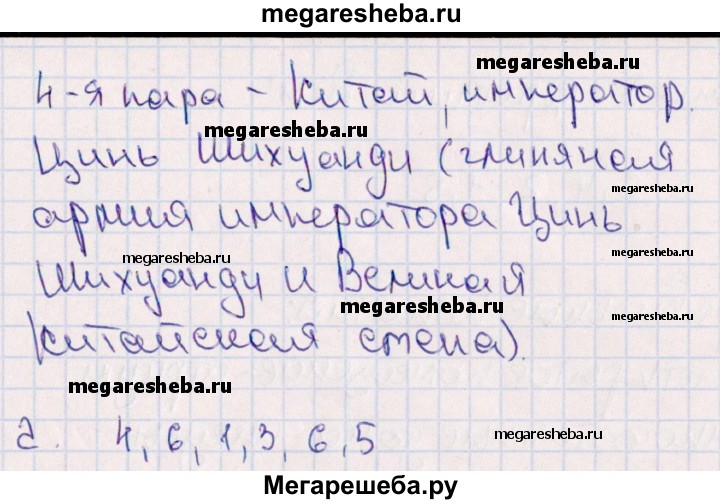 megaresheba.ru
4-я пара - Китай, император
megaresheba.ru
megaresheba.ru
Цинь Шихуанди (глиняная
megaresheba.ru
армия императора Цинь
megaresheba.ru
megaresheba.ru
Шихуанди и Великая
megaresheba.ru
megaresheba.ru
Китайская стена).
megaresheba.ru
2. 4, 6, 1, 3, 6, 5
megaresheba.ru
Мегарешеба.ру